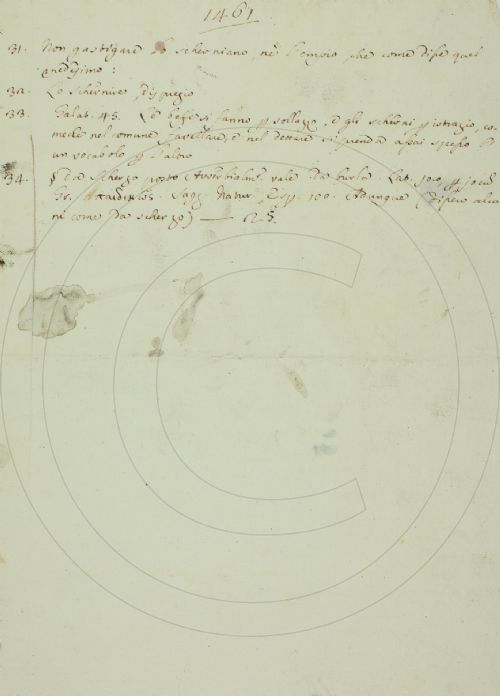 1461
31. Non gastigare lo scherniano, nè l'empio, che come disse quel
medesimo:
32. Lo schernire, dispregio
33. Galat. 45. Le beffe si fanno p sollazzo, e gli scherni p istrazio, co-
mechè nel comune favellare, e nel dettare si prenda assai spesso l'
un vocabolo p l'altro
34. § Da scherzo posto Avverbialm. vale Da burla. Lat. joco, p jocū
Gr. Sagg. Natur. Esp. 100. Adunque (dissero alcu-
ni come Da scherzo) — 125.